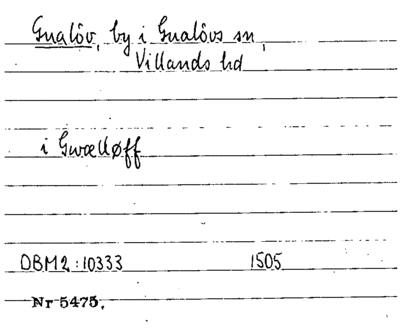 Gualöv, by i Gualövs sn,
Villands hd
i GwællØff
DBM2:10333 1505
Nr 5475.